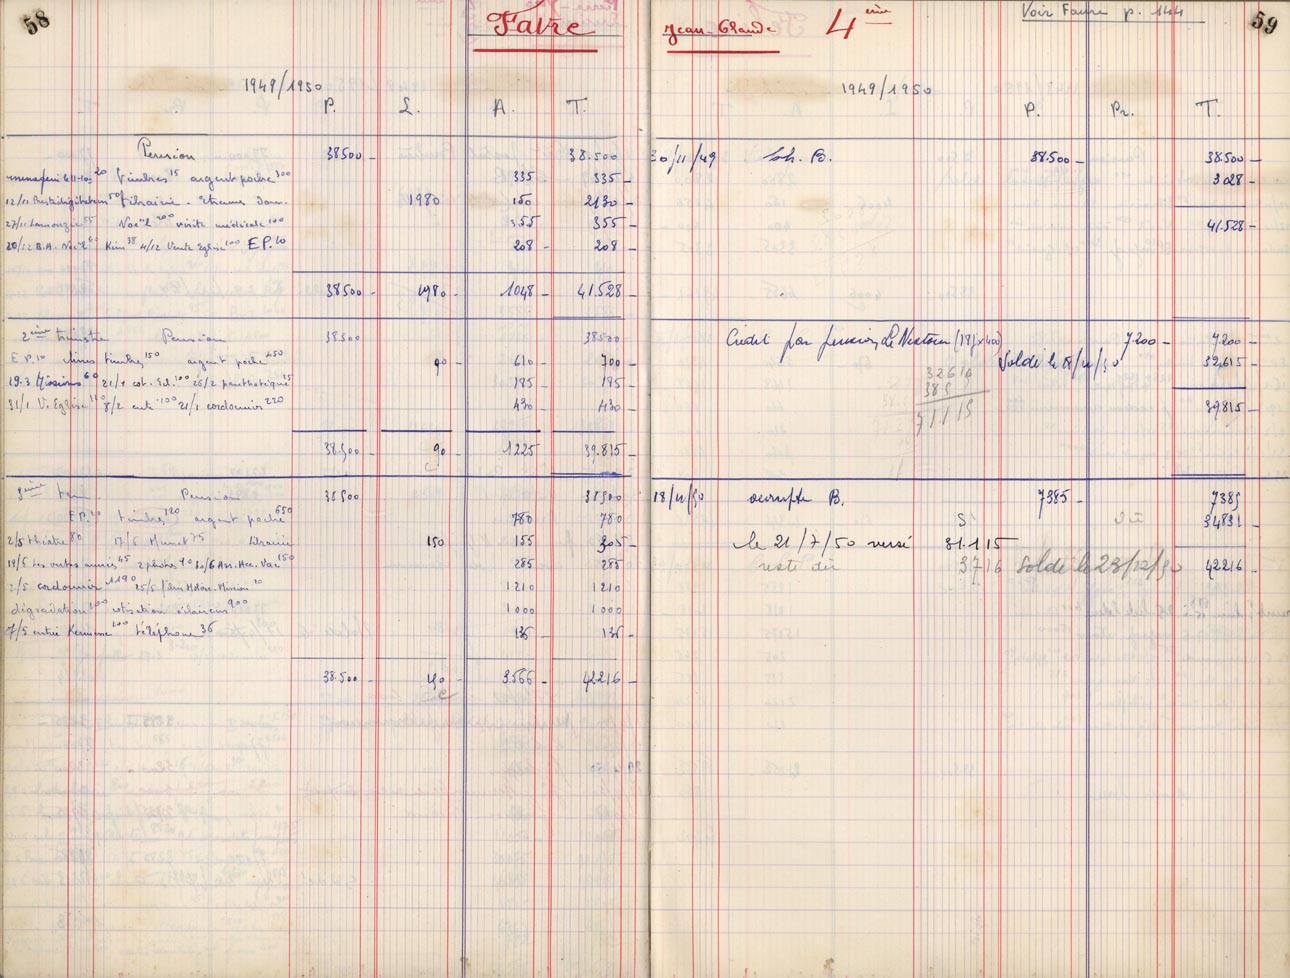 58
Favre
1949/1950
P. L. A. T.
Pension 38500 - 38.500 -
20 timbres 15 argent poche 300 335 - 335 -
12/11 Prestidigitateur 50 librairie - Etrennes Dom. 1980 150 2130 -
27/11 55 Noël 200 visite médicale 100 355 355 -
20/12 B.A. Noël 60 38 4/12 Vente Eglise 100 E.P. 10 208 - 208 -
38500 - 1980 - 1048 - 41.528 -
2ème trimestre Pension 38.500 38500
E.P. 10 timbres 150 argent poche 450 90 610 - 700 -
19.3 Missions 60 21/1 cot. Ecl. 100 25/2 panthotique 25 185 - 185 -
31/1 V. Eglise 110 8/2 100 21/1 cordonnier 220 430 - 430 -
38.500 - 90 - 1225 39.815 -
3ème trim. Pension 38500 38500
E.P. 10 timbres 120 argent poche 650 780 780 -
2/5 théatre 80 17/5 Munet 75 librairie 150 155 305 -
18/5 Les vertes années 45 2 photos 90 Ass. Acc. Vac 150 285 285 -
2/5 cordonnier 1190 25/5 film 20 1210 1210 -
dégradation 100 cotisation éclaireurs 900 1000 1000 -
7/5 entrée Kermesse 100 téléphone 36 136 - 136 -
38.500 - 150 - 3.566 - 42216 -
59
Jean-Claude 4 ème
Voir Favre p. 144
1949/1950
P. Pr. T.
30/11/49 Ch. B. 38.500 - 38.500 -
3028 -
41.528 -
Crédit par pension (18j x 400) 7.200 - 7.200 -
Soldé le 18/4/50 32,615 -
32615
385
71115
39.815 -
18/4/50 acompte B. 7385 - 7385
Dû 34831 -
le 21/7/50 versé 31.115
reste dû 3716 Soldé le 23/12/50 42216 -